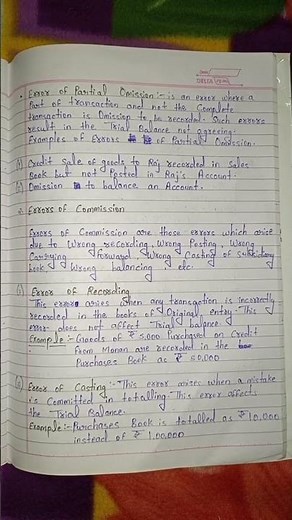 • Error of Partial Omission:- is an error where a
Part of transaction and not the Complete
transaction is Omission to be recorded. Such errors
result in the Trial Balance not agreeing.
Examples of Errors of Partial Omission.
(i) Credit Sale of goods to Raj recorded in Sales
Book but not Posted in Raj's Account.
(ii) Omission to balance an Account.
Errors of Commission
Errors of Commission are those errors which arise
due to Wrong recording, Wrong Posting, Wrong
Carrying forward, Wrong Casting of subsidiary
book, Wrong balancing, etc.
(i) Error of Recording
This error arises when any transaction is incorrectly
recorded in the books of Original entry. This
error does not affect Trial balance.
Example:- Goods of ₹ 5,000 Purchased on Credit
From Mohan are recorded in the
Purchases Book as ₹
(ii) Error of Casting:- This error arises when a mistake
is Committed in totalling. This error affects
the Trial Balance.
Example:- Purchases Book is totalled as ₹ 10,000
instead of ₹ 1,00,000